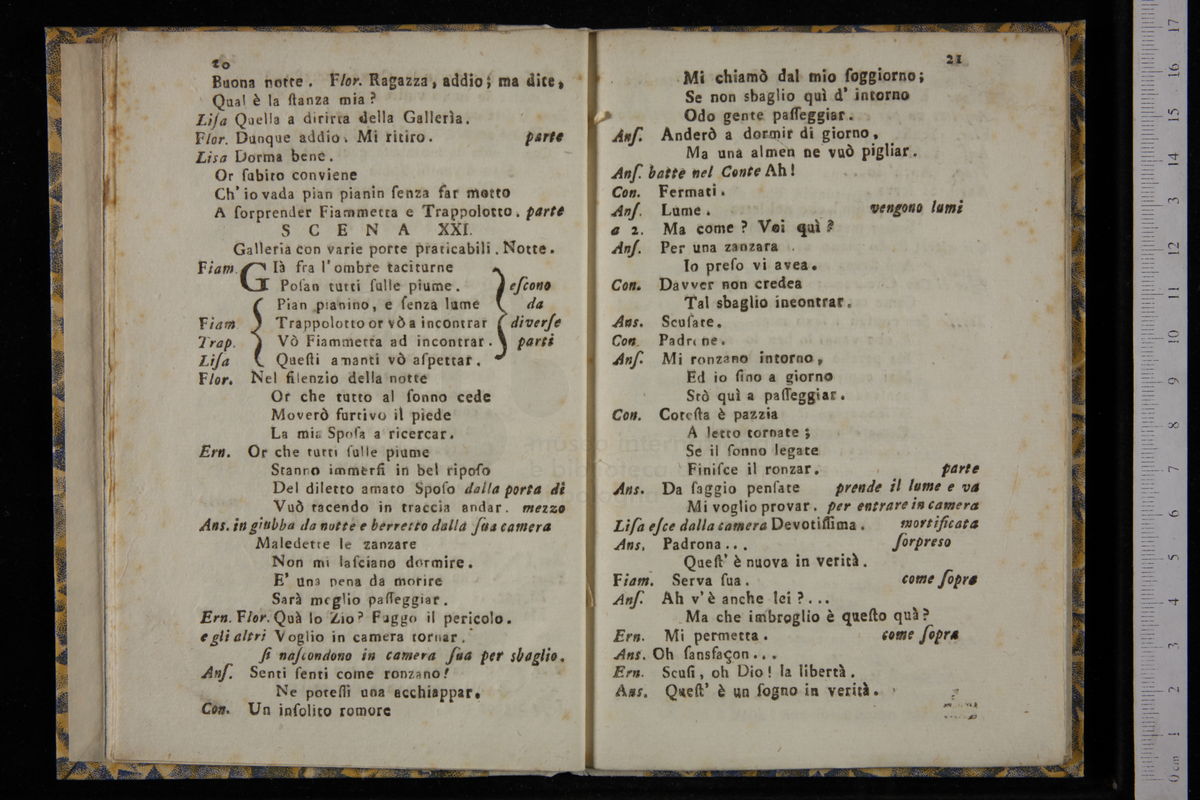 20
Buona notte. Flor. Ragazza, addio; ma dite,
Qual è la ſtanza mia?
Liſa Quella a diritta della Gallerìa.
Flor. Dunque addio. Mi ritiro. parte
Lisa Dorma bene.
Or ſubito conviene
Ch' io vada pian pianin ſenza far motto
A ſorprender Fiammetta e Trappolotto. parte
SCENA XXI.
Galleria con varie porte praticabili. Notte.
Fiam. Già fra l' ombre taciturne
Poſan tutti ſulle piume. eſcono
Pian pianino, e ſenza lume da
Fiam Trappolotto or vò a incontrar diverſe
Trap. Vò Fiammetta ad incontrar. parti
Liſa Queſti amanti vò aſpettar.
Flor. Nel ſilenzio della notte
Or che tutto al ſonno cede
Moverò furtivo il piede
La mia Spoſa a ricercar.
Ern. Or che tutti ſulle piume
Stanno immerſi in bel ripoſo
Del diletto amato Spoſo dalla porta di
Vuò tacendo in traccia andar. mezzo
Ans. in giubba da notte e berretto dalla ſua camera
Maledette le zanzare
Non mi laſciano dormire.
E' una pena da morire
Sarà meglio paſſeggiar.
Ern. Flor. Quà lo Zio? Fuggo il pericolo.
e gli altri Voglio in camera tornar.
ſi naſcondono in camera ſua per sbaglio.
Anſ. Senti ſenti come ronzano!
Ne poteſſi una acchiappar.
Con. Un inſolito romore
21
Mi chiamò dal mio ſoggiorno;
Se non sbaglio quì d' intorno
Odo gente paſſeggiar.
Anſ. Anderò a dormir di giorno,
Ma una almen ne vuò pigliar.
Anſ. batte nel Conte Ah!
Con. Fermati.
Anſ. Lume. vengono lumi
a 2. Ma come? Voi quì?
Anſ. Per una zanzara
Io preſo vi avea.
Con. Davver non credea
Tal sbaglio incontrar.
Ans. Scuſate.
Con. Padrone.
Anſ. Mi ronzano intorno,
Ed io ſino a giorno
Stò quì a paſſeggiar.
Con. Coteſta è pazzia
A letto tornate;
Se il ſonno legate
Finiſce il ronzar. parte
Ans. Da ſaggio penſate prende il lume e va
Mi voglio provar. per entrare in camera
Liſa eſce dalla camera Devotiſſima. mortificata
Ans. Padrona... ſorpreso
Queſt' è nuova in verità.
Fiam. Serva ſua. come ſopra
Anſ. Ah v' è anche lei?...
Ma che imbroglio è queſto quà?
Ern. Mi permetta. come ſopra
Ans. Oh ſansfaçon...
Ern. Scuſi, oh Dio! la libertà.
Ans. Queſt' è un ſogno in verità.